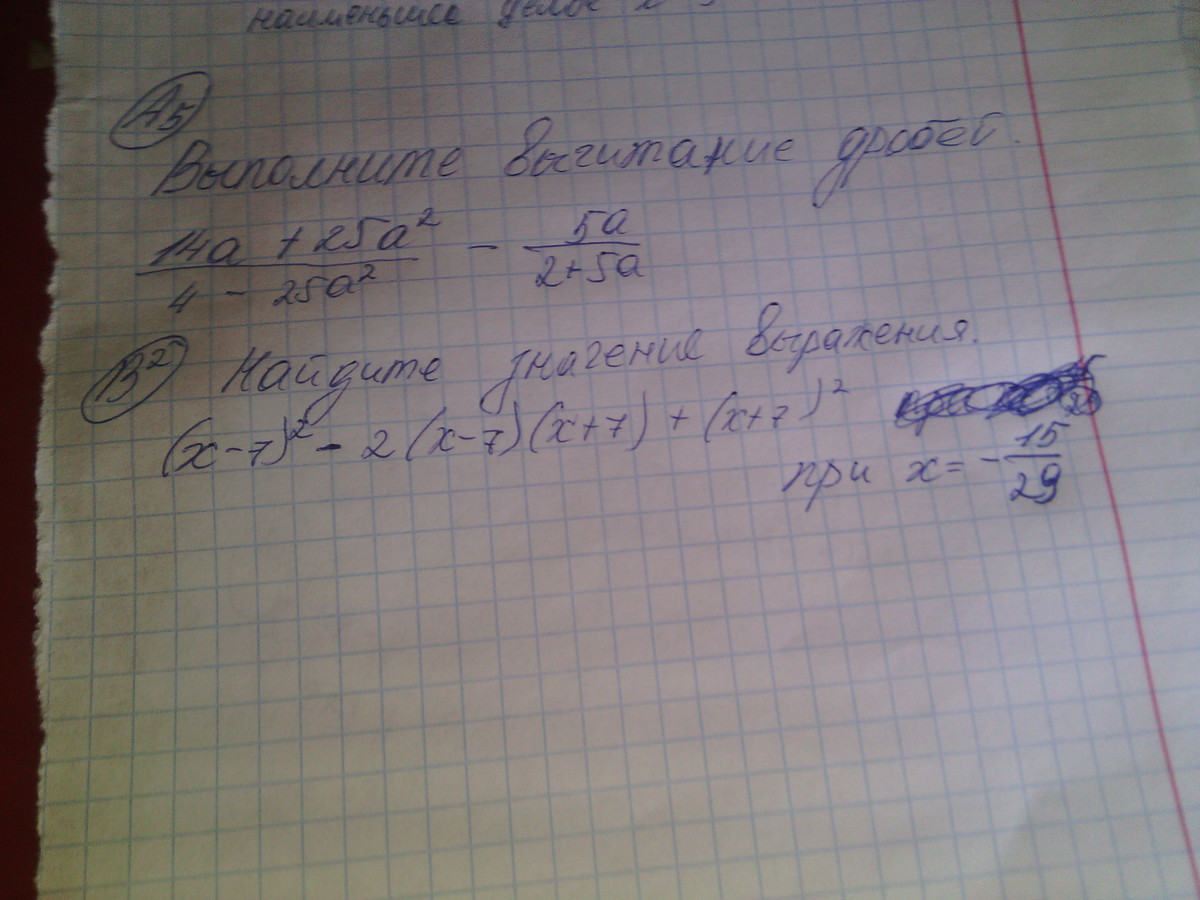 наименьшее целое
А5
Выполните вычитание дробей.
14a + 25a² / 4 - 25a² - 5a / 2+5a
В2 Найдите значение выражения.
(x-7)² - 2(x-7)(x+7) + (x+7)²
при x = -15/29